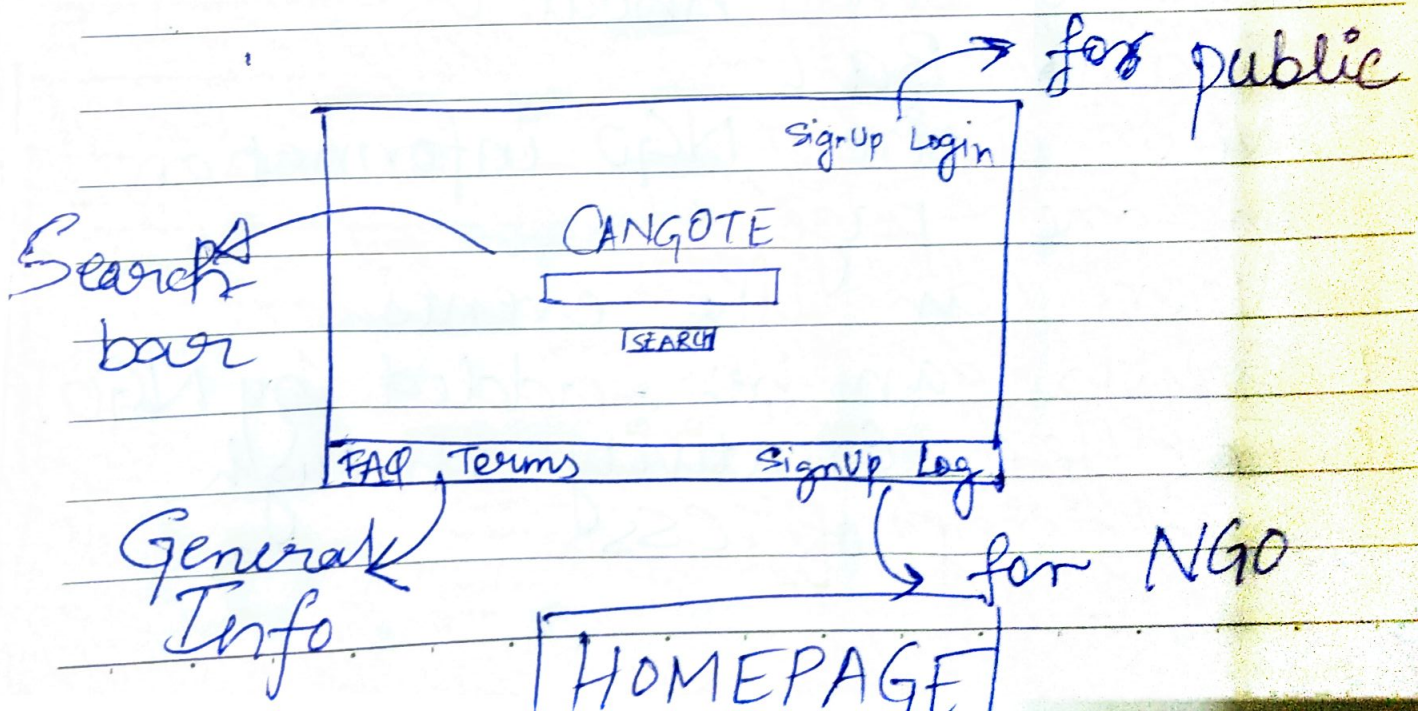 for public
SignUp Login
CANGOTE
Search
bar
SEARCH
FAQ, Terms
SignUp Log
General
Info
for NGO
HOMEPAGE